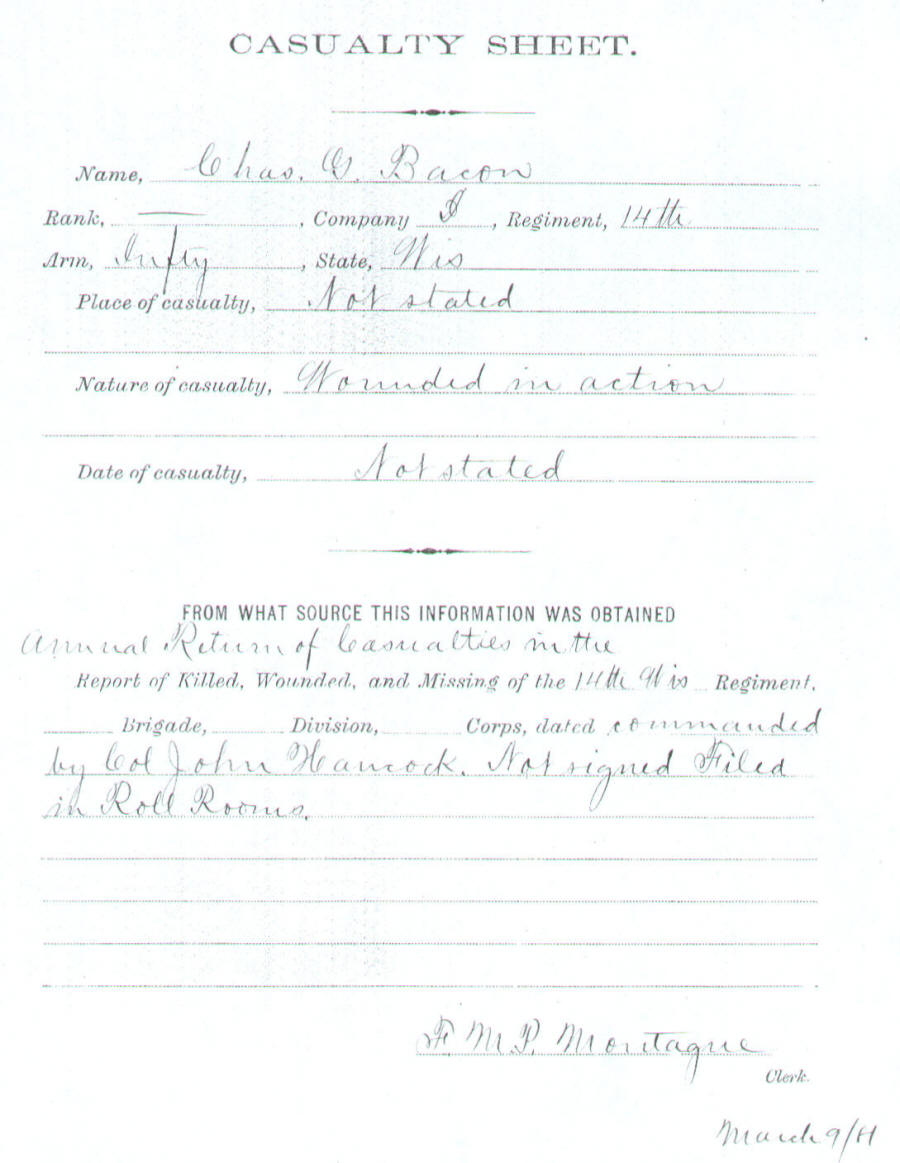 CASUALTY SHEET.
Name, Chas. G. Bacon
Rank, — , Company I , Regiment, 14th
Arm, Infty , State, Wis
Place of casualty, Not stated
Nature of casualty, Wounded in action
Date of casualty, Not stated
FROM WHAT SOURCE THIS INFORMATION WAS OBTAINED
Annual Return of Casualties in the
Report of Killed, Wounded, and Missing of the 14th Wis Regiment,
Brigade, Division, Corps, dated commanded
by Col John Hancock. Not signed Filed
in Roll Rooms.
F. M. P. Montague
Clerk.
March 9/